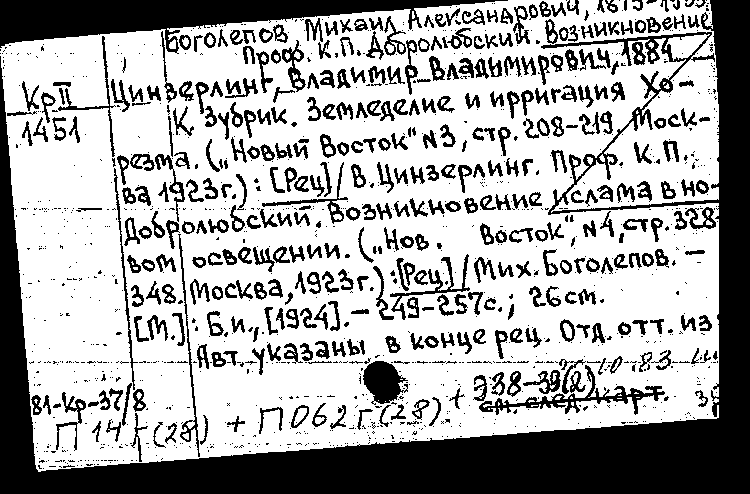 Боголепов Михаил Александрович, 1875-1933
Проф. К.П. Добролюбский. Возникновение
Цинзерлинг, Владимир Владимирович, 1884
Кр II
1451
К. Зубрик. Земледелие и ирригация Хо-
резма. („Новый Восток" №3, стр. 208-219. Моск-
ва 1923 г.) : [Рец] / В. Цинзерлинг. Проф. К.П.
Добролюбский. Возникновение ислама в но-
вом освещении. („Нов. Восток", №4, стр. 328-
348. Москва, 1923 г.) : [Рец.] / Мих. Боголепов. –
[М.] : Б.и., [1924]. – 249-257 с. ; 26 см.
Авт. указаны в конце рец. Отд. отт. из
81-Кр-37/8
Э38-39(2)
10.83
см. след. карт.
П 14 г (28) + П 062 г (28) +